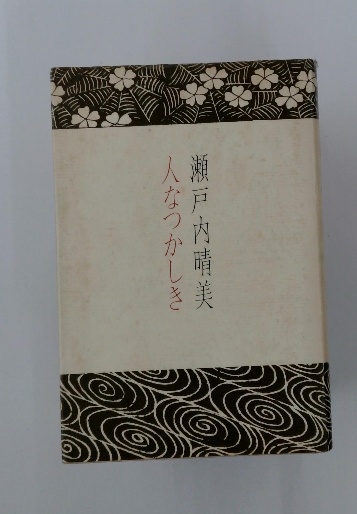 瀬戸内晴美
人なつかしき